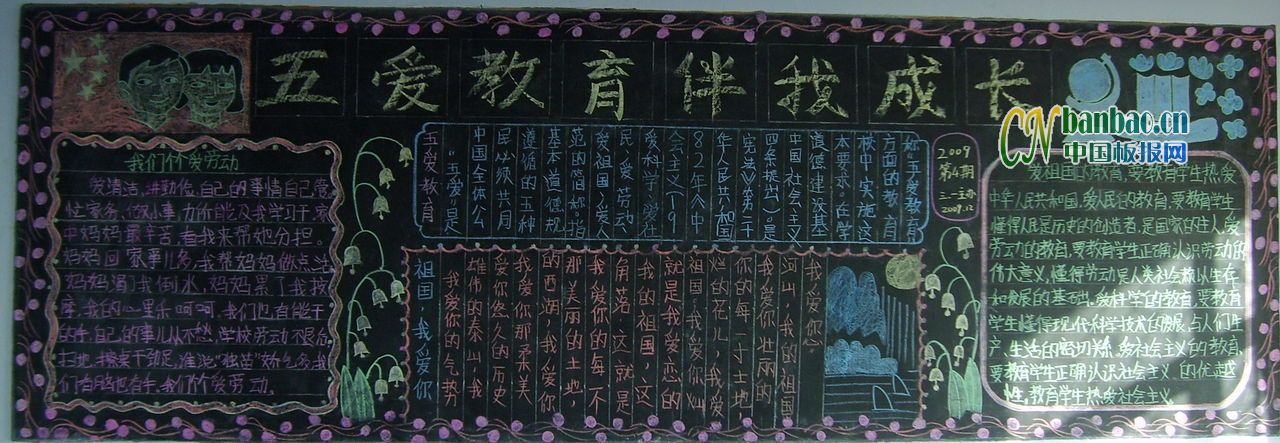 五爱教育伴我成长
CN banbao.cn
中国板报网
我们个个爱劳动
爱清洁,讲勤俭,自己的事情自己管
忙家务,做小事,力所能及我学习干,家
中妈妈最辛苦,看我来帮她分担。
妈妈回家事儿多,我帮妈妈做点活
妈妈渴了我倒水,妈妈累了我按
摩,我的心里乐呵呵。我们也有能干
的手,自己的事儿从不愁,学校劳动不畏后
扫地、擦桌干劲足,谁说"独苗"娇气多,我
们有脑也有手,我们个个爱劳动。
五爱教育
"五爱"是
中国全体公
民必须共同
遵循的五种
基本道德规
范的简称。指
爱祖国、爱人
民、爱劳动、
爱科学、爱社
会主义(19
82年《中
华人民共和国
宪法》第二十
四条提出)是
中国社会主义
道德建设基
本要求。在学
校中实施这
方面的教育
称"五爱教育"
2009
第4期
三·一主办
2009.12
祖国,我爱你
我爱你的气势
雄伟的泰山,我
爱你悠久的历史
我爱你那柔美
的西湖,我爱你
那美丽的土地
我爱你的每一个
角落,这就是
我的祖国,这
就是我爱恋的
祖国,我爱你灿
烂的花儿,我爱
你的每一寸土地,
我爱你壮丽的
河山,我的祖国
我爱您。
爱祖国的教育,要教育学生热爱
中华人民共和国。爱人民的教育,要教育学生
懂得人民是历史的创造者,是国家的主人。爱
劳动的教育,要教育学生正确认识劳动的
伟大意义,懂得劳动是人类社会赖以生存
和发展的基础。爱科学的教育,要教育
学生懂得现代科学技术的发展,与人们生
产、生活的密切关系。爱社会主义的教育,
要教育学生正确认识社会主义的优越
性,教育学生热爱社会主义。